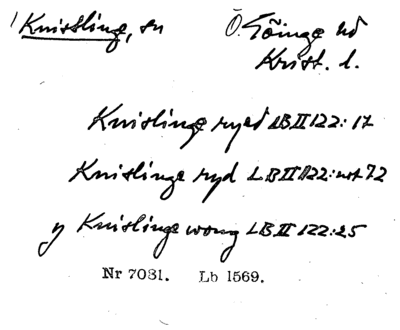 1 Knisslinge, sn Ö. Göinge hd
Krist. l.
Knislinge ryed LB II 122:17
Knislinge ryd LB II 122: not 72
y Knislinge wong LB II 122:25
Nr 7031. Lb 1569.